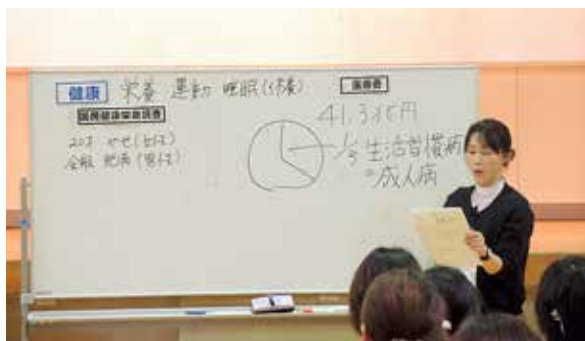 健康 栄養 運動 睡眠(休養)
国民健康栄養調査
20才 やせ(女性)
全般 肥満(男性)
医療費
41.3兆円
1/3 生活習慣病
=成人病